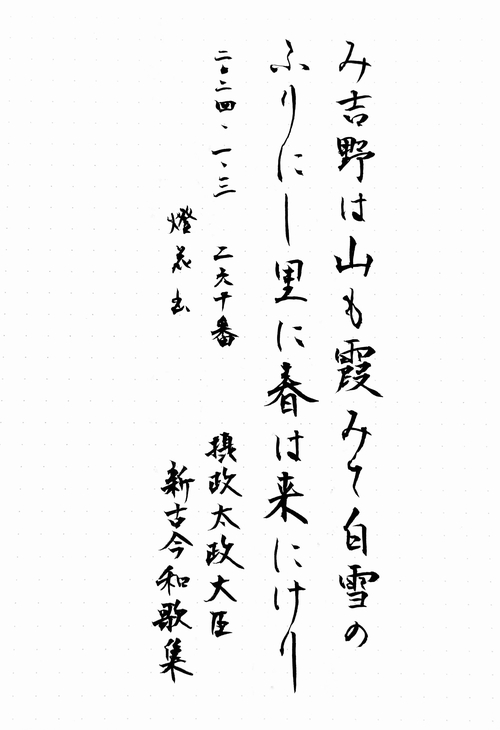 み吉野は山も霞みて白雪の
ふりにし里に春は来にけり
二〇二四、一、三 二六十番 摂政太政大臣
燈花 新古今和歌集